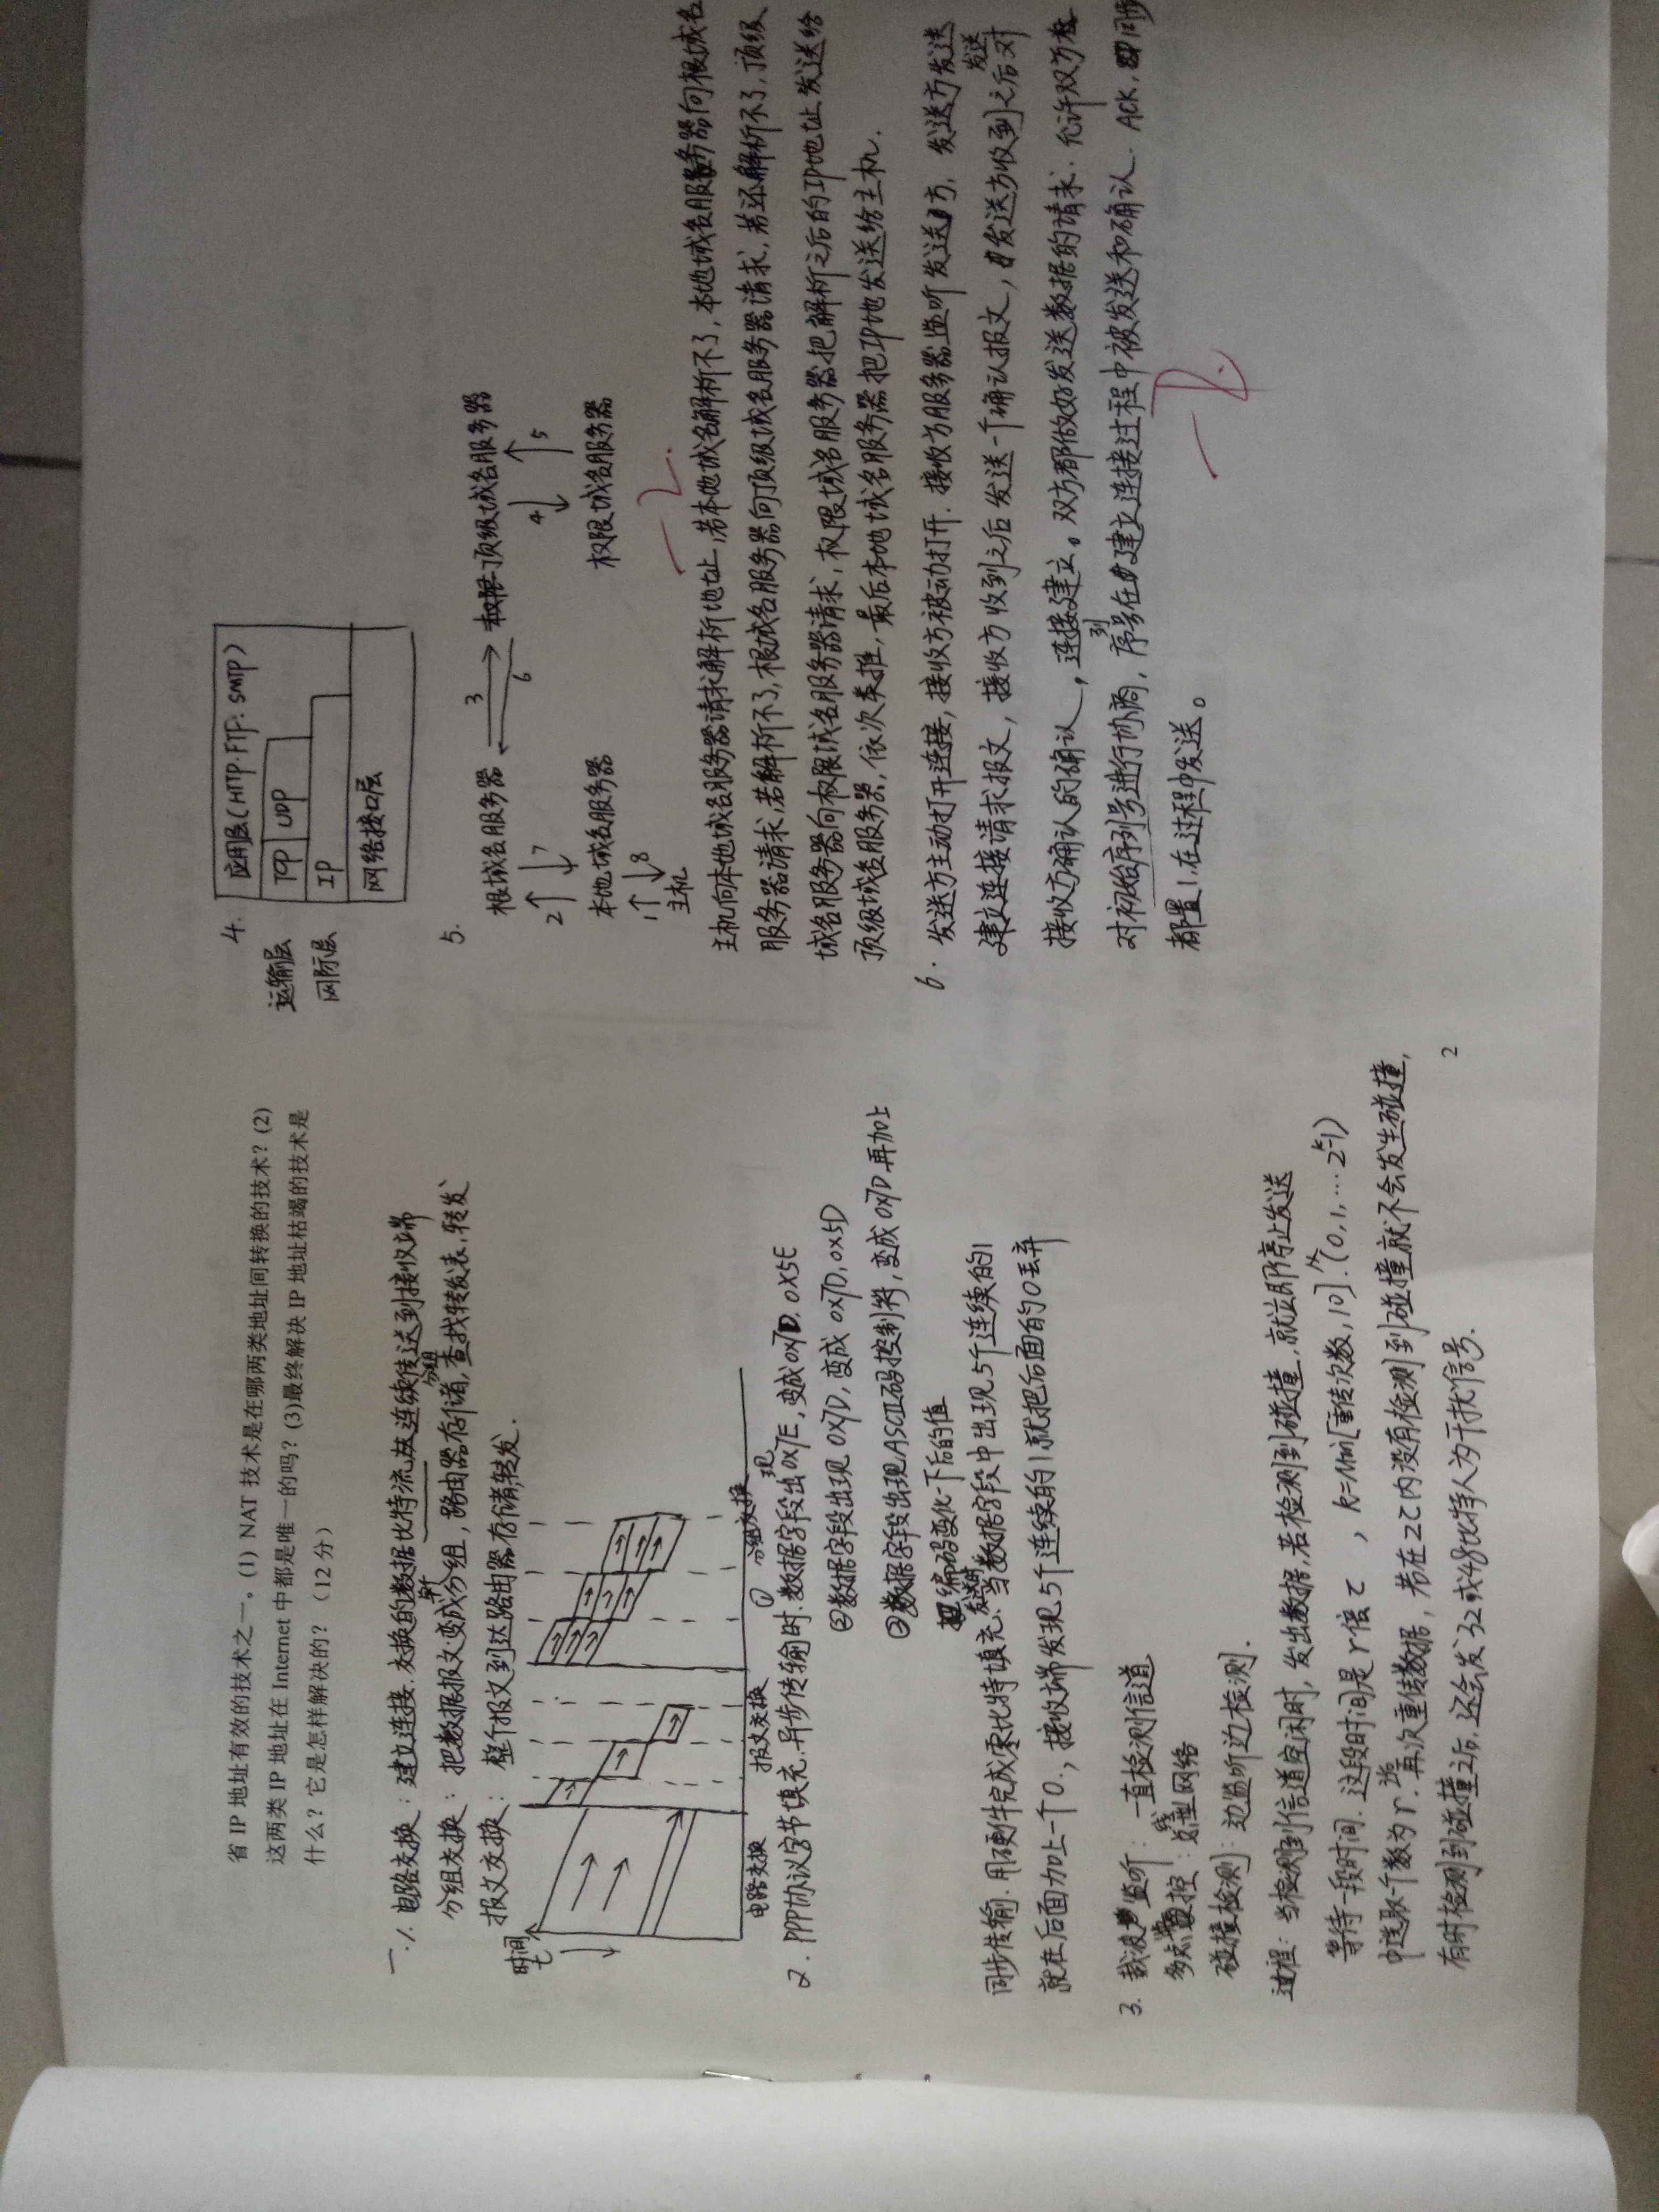 省 IP 地址有效的技术之一。(1) NAT 技术是在哪两类地址间转换的技术？(2)
这两类 IP 地址在 Internet 中都是唯一的吗？(3)最终解决 IP 地址枯竭的技术是
什么？它是怎样解决的？（12 分）
一.1. 电路交换：建立连接.交换的数据比特流从连续传送到接收端
分组交换：把数据报文变成单个分组，路由器存储分组，查找转发表，转发
报文交换：整个报文到达路由器存储,转发.
时间
t
电路交换 报文交换 分组交换
2. PPP协议字节填充.异步传输时.①数据字段出现0x7E,变成0x7D,0x5E
②数据字段出现 0x7D,变成 0x7D,0x5D
③数据字段出现ASCII码控制符,变成0x7D再加上
编码变化一下后的值
同步传输.用硬件完成零比特填充.发送时当数据字段中出现5个连续的1
就在后面加上一个0.，接收端发现5个连续的1就把后面的0丢弃
3. 载波监听：一直检测信道
多点 控：总线型网络
碰撞检测：边监听边检测.
过程：当检测到信道空闲时，发出数据,若检测到碰撞.就立即停止发送
等待一段时间.这段时间是r倍τ ，k=Min[重传次数,10].从(0,1,…2^k-1)
中选取一个数为r.再次重传数据，若在2τ内没有检测到碰撞就不会发生碰撞,
有时检测到碰撞之后.还会发32或48比特人为干扰信号.
2
4. 应用层(HTTP.FTF.SMTP)
运输层 TCP UDP
网际层 IP
网络接口层
5.
根域名服务器 3 6 顶级域名服务器
2 7 4 5
本地域名服务器 权限域名服务器
1 8
主机
-2.
主机向本地域名服务器请求解析地址,若本地域名解析不了,本地域名服务器向根域名
服务器请求,若解析不了,根域名服务器向顶级域名服务器请求,若还解析不了,顶级
域名服务器向权限域名服务器请求,权限域名服务器把解析之后的IP地址发送给
顶级域名服务器,依次类推,最后本地域名服务器把IP地发送给主机.
6. 发送方主动打开连接,接收方被动打开.接收方服务器监听发送方,发送方发送
建立连接请求报文,接收方收到之后发送一个确认报文,发送方收到之后发送对
接收方确认的确认，连接建立。双方都做好发送数据的请求.允许双方
对初始序列号进行协商,序列号在建立连接过程中被发送和确认.ACK,同步
都置1,在过程中发送。